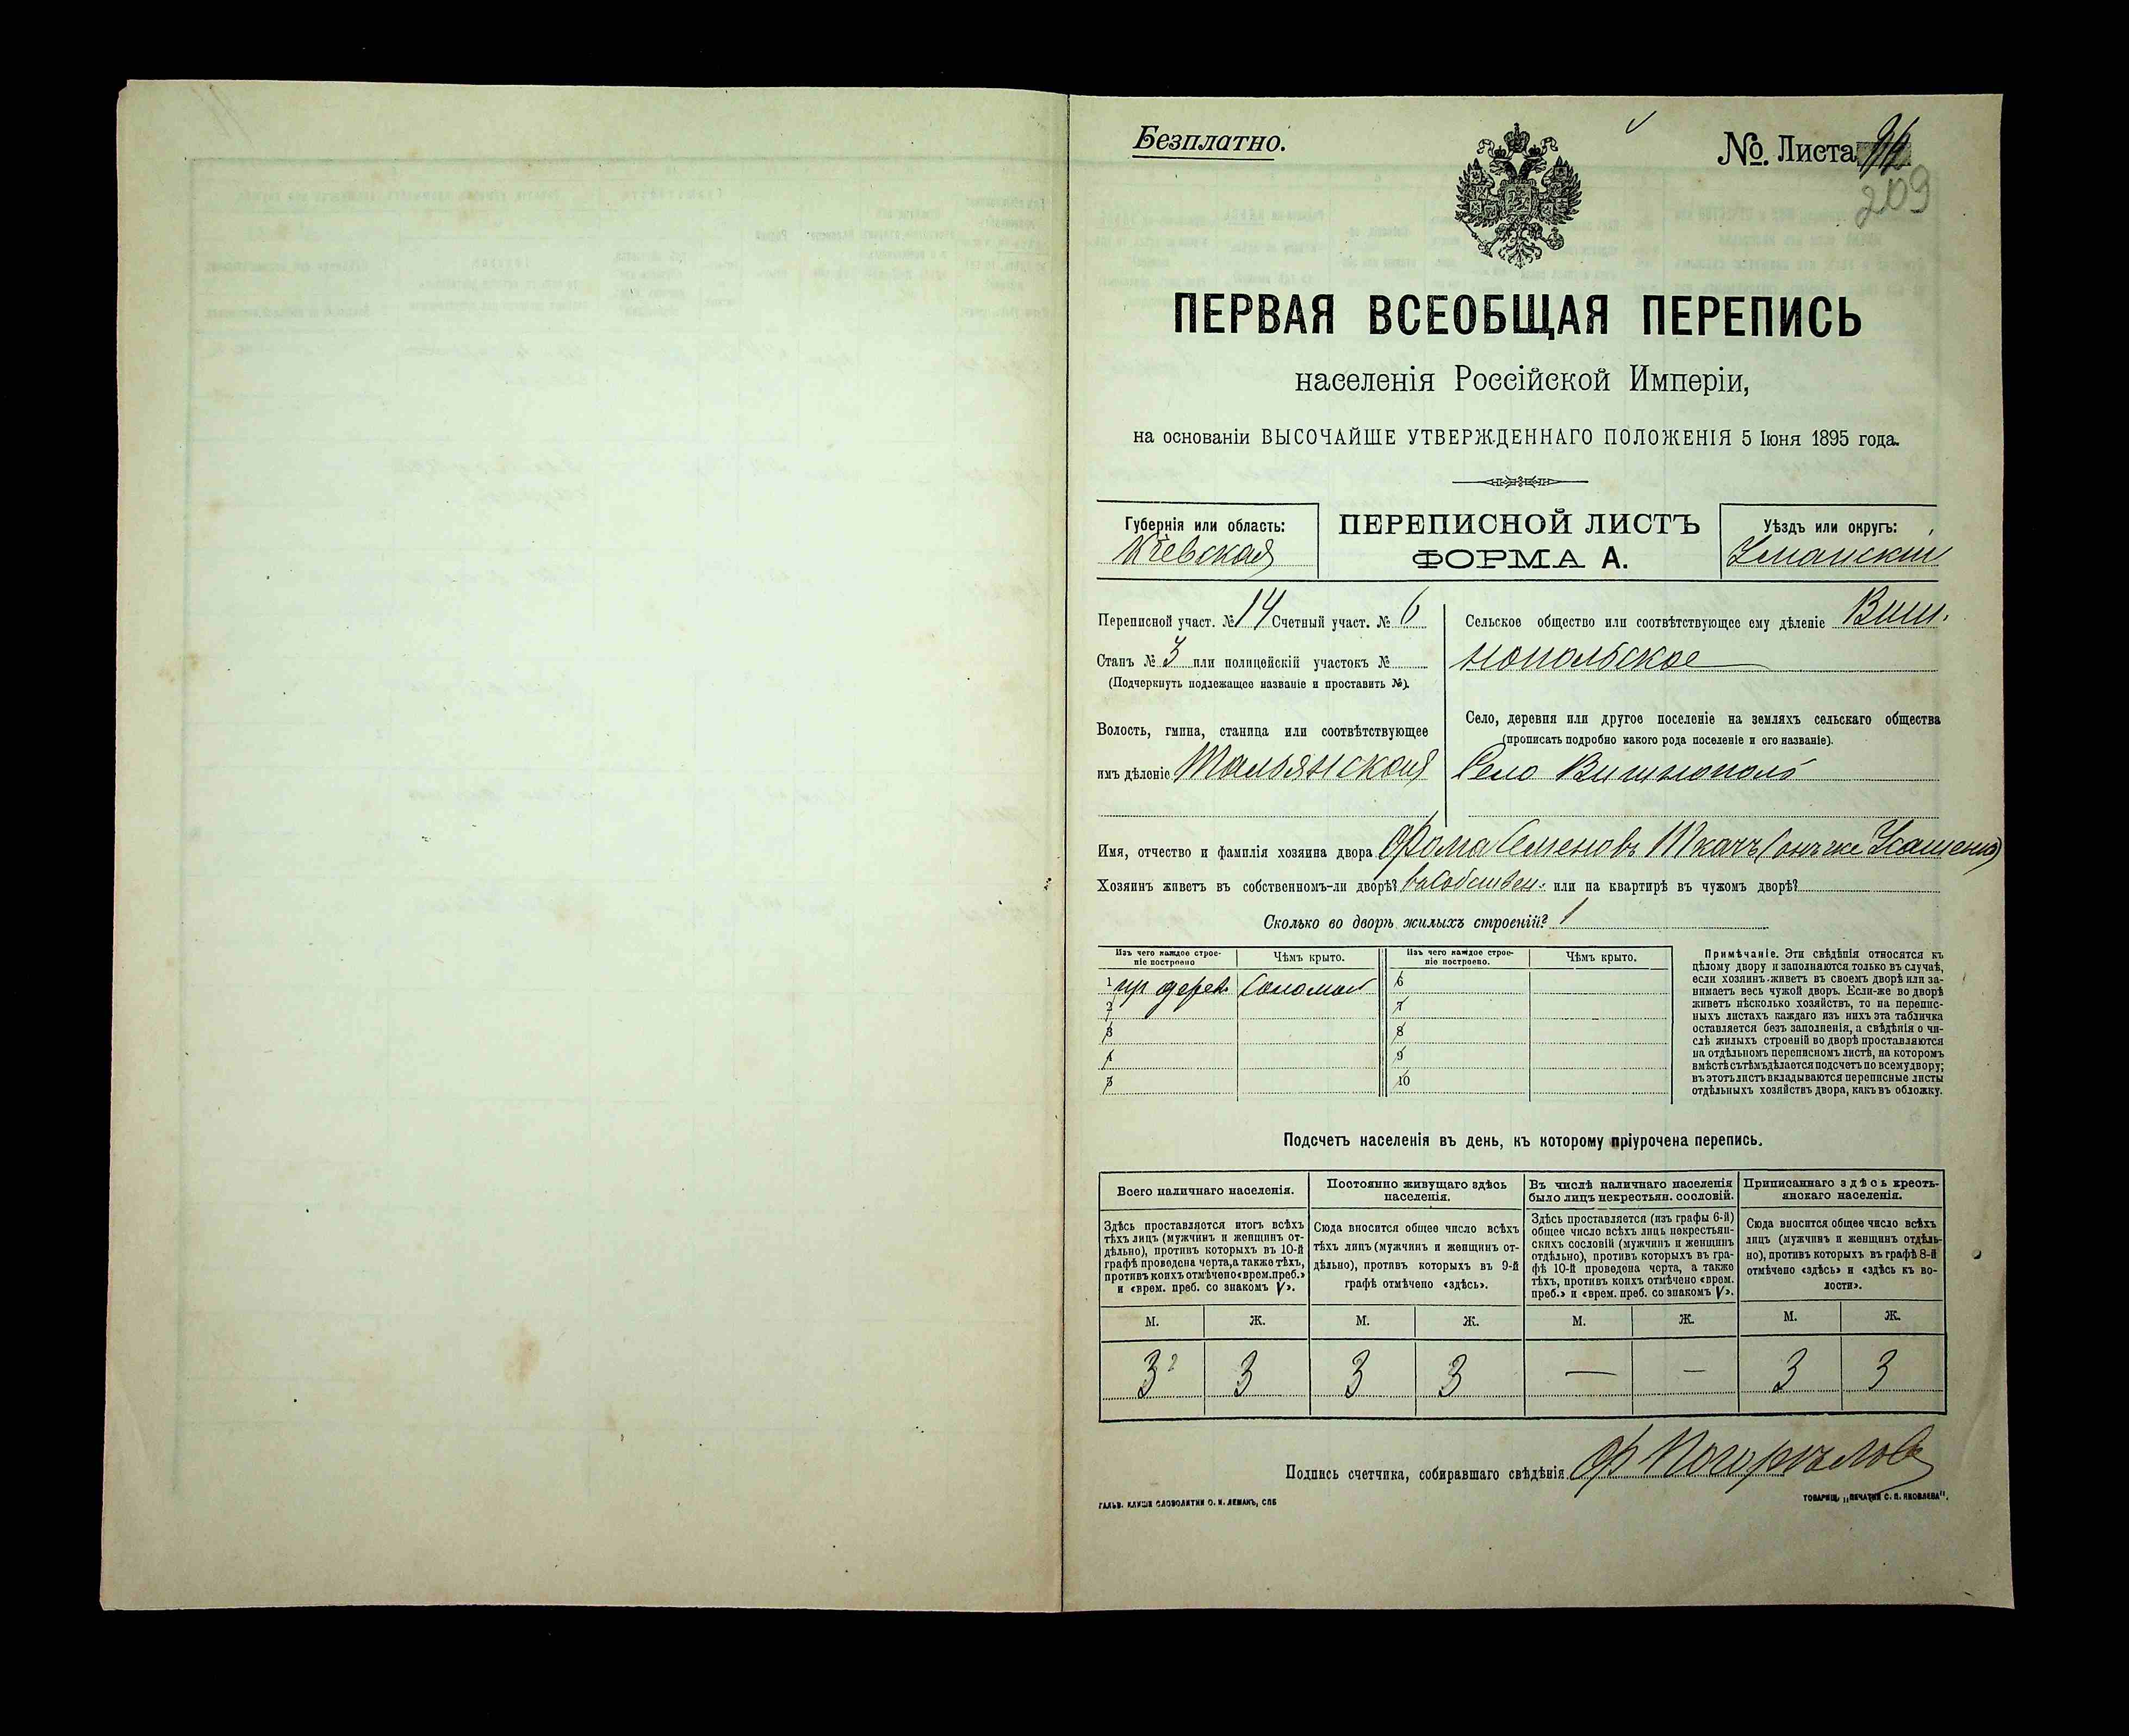 Безплатно.
№. Листа
209
ПЕРВАЯ ВСЕОБЩАЯ ПЕРЕПИСЬ
населенія Россійской Имперіи,
на основаніи ВЫСОЧАЙШЕ УТВЕРЖДЕННАГО ПОЛОЖЕНІЯ 5 Іюня 1895 года.
Губернія или область:
Кіевская
ПЕРЕПИСНОЙ ЛИСТЪ
ФОРМА А.
Уѣздъ или округъ:
Уманскій
Переписной участ. № 14 Счетный участ. № 6
Станъ № 3 или полицейскій участокъ №
(Подчеркнуть подлежащее названіе и проставить №).
Волость, гмина, станица или соотвѣтствующее
имъ дѣленіе Тальянская
Сельское общество или соотвѣтствующее ему дѣленіе Виш-
нопольское
Село, деревня или другое поселеніе на земляхъ сельскаго общества
(прописать подробно какого рода поселеніе и его названіе).
Село Вишнополь
Имя, отчество и фамилія хозяина двора Фома Семеновъ Ткачъ (онъ же
Хозяинъ живетъ въ собственномъ-ли дворѣ? въ собствен. или на квартирѣ въ чужомъ дворѣ?
Сколько во дворѣ жилыхъ строеній? 1
Изъ чего каждое строе-
ніе построено
Чѣмъ крыто.
Изъ чего каждое строе-
ніе построено.
Чѣмъ крыто.
1 дерев. Соломой
2
3
4
5
6
7
8
9
10
Примѣчаніе. Эти свѣдѣнія относятся къ
цѣлому двору и заполняются только въ случаѣ,
если хозяинъ живетъ въ своемъ дворѣ или за-
нимаетъ весь чужой дворъ. Если-же во дворѣ
живетъ нѣсколько хозяйствъ, то на перепис-
ныхъ листахъ каждаго изъ нихъ эта табличка
оставляется безъ заполненія, а свѣдѣнія о чи-
слѣ жилыхъ строеній во дворѣ проставляются
на отдѣльномъ переписномъ листѣ, на которомъ
вмѣстѣ съ тѣмъ дѣлается подсчетъ по всему двору;
въ этотъ листъ вкладываются переписные листы
отдѣльныхъ хозяйствъ двора, какъ въ обложку.
Подсчетъ населенія въ день, къ которому пріурочена перепись.
Всего наличнаго населенія.
Здѣсь проставляется итогъ всѣхъ
тѣхъ лицъ (мужчинъ и женщинъ от-
дѣльно), противъ которыхъ въ 10-й
графѣ проведена черта, а также тѣхъ,
противъ коихъ отмѣчено «врем. преб.»
и «врем. преб. со знакомъ V».
Постоянно живущаго здѣсь
населенія.
Сюда вносится общее число всѣхъ
тѣхъ лицъ (мужчинъ и женщинъ от-
дѣльно), противъ которыхъ въ 9-й
графѣ отмѣчено «здѣсь».
Въ числѣ наличнаго населенія
было лицъ некрестьян. сословій.
Здѣсь проставляется (изъ графы 6-й)
общее число всѣхъ лицъ некрестьян-
скихъ сословій (мужчинъ и женщинъ
отдѣльно), противъ которыхъ въ гра-
фѣ 10-й проведена черта, а также
тѣхъ, противъ коихъ отмѣчено «врем.
преб.» и «врем. преб. со знакомъ V».
Приписаннаго здѣсь кресть-
янскаго населенія.
Сюда вносится общее число всѣхъ
лицъ (мужчинъ и женщинъ отдѣль-
но), противъ которыхъ въ графѣ 8-й
отмѣчено «здѣсь» и «здѣсь къ во-
лости».
М. Ж. М. Ж. М. Ж. М. Ж.
3 3 3 3 — — 3 3
Подпись счетчика, собиравшаго свѣдѣнія Ф Погорѣлов
ГАЛЬВ. КЛИШЕ СЛОВОЛИТНИ О. И. ЛЕМАНЪ, СПБ
ТОВАРИЩ. „ПЕЧАТНЯ С. П. ЯКОВЛЕВА".